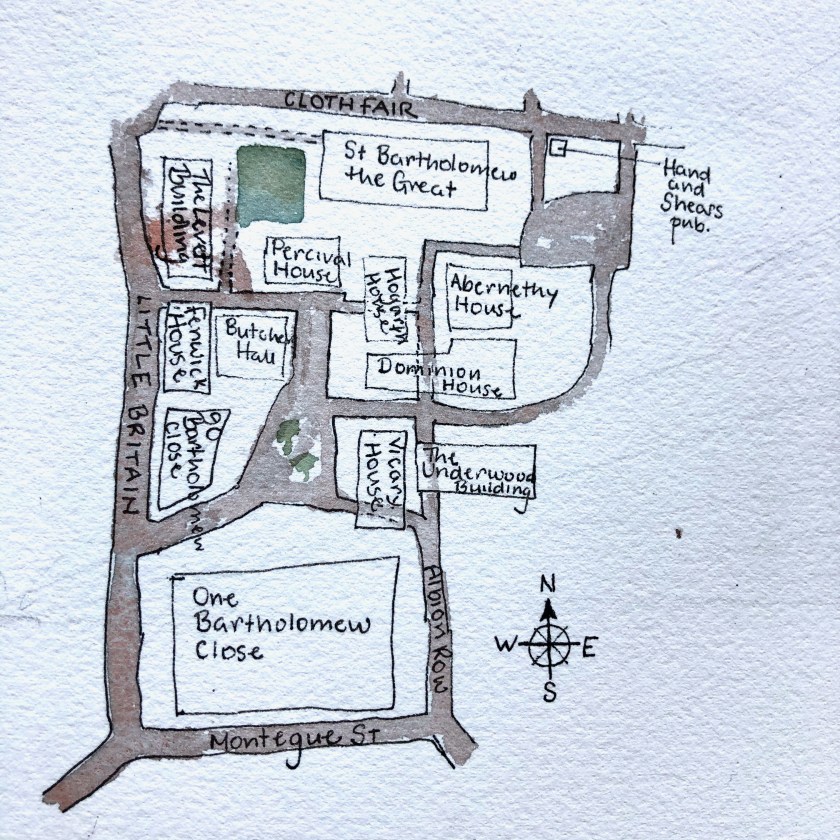 CLOTH FAIR
St Bartholomew
the Great
Hand
and
Shears
pub.
The Levett
Building
Percival
House
Hogarth
House
Abernethy
House
LITTLE BRITAIN
Fenwick
House
Butcher
Hall
Dominion
House
90
Bartholomew
Close
Vicary
House
The
Underwood
Building
One
Bartholomew
Close
Albion Row
N
W
E
S
Montegue St